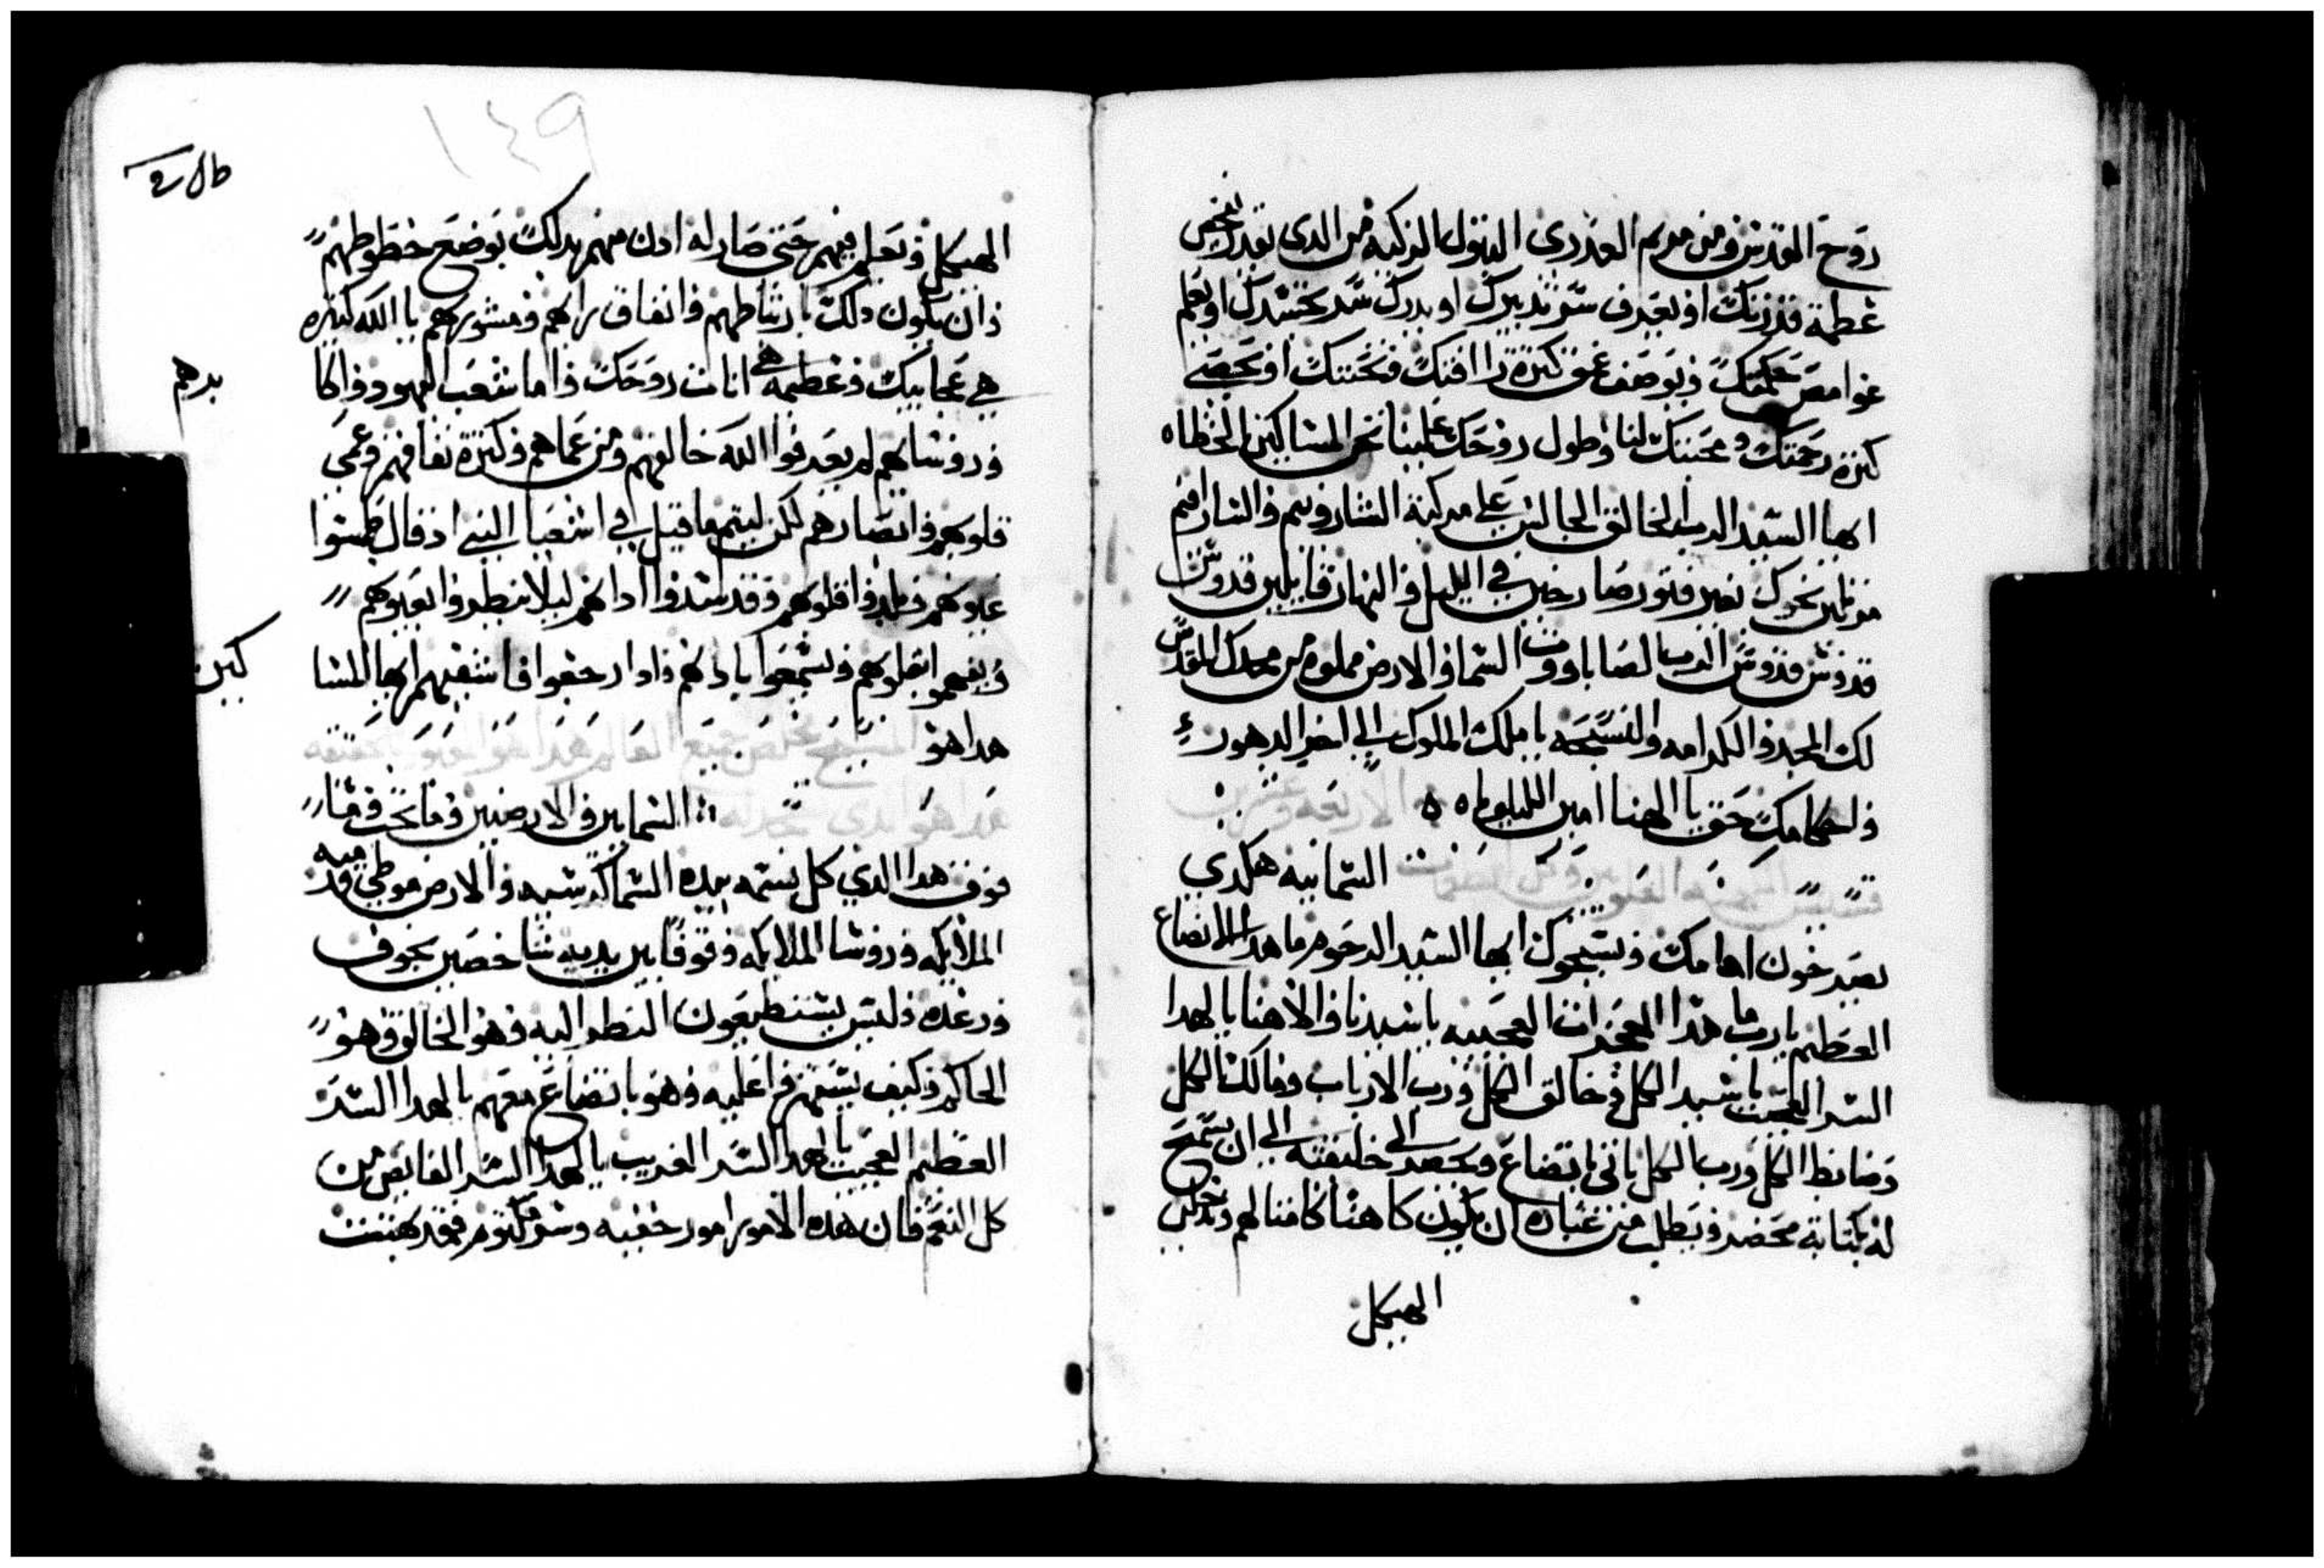 روح القدس ومن مريم العذري البتول الزكيه من الدي يقدر يفحص
عظمة قدرتك او يعرف سر تدبيرك او يدرك سر تجسدك او يعلم
غوامض حكمتك ويوصف عمق كترة راافتك وتحننك او يحصي
كترة رحمتك ومحبتك لنا وطول روحك علينا نحن المساكين الخطاه
ايها السيد الرب الخالق الجالس على مركبة الشاروبيم والسارافيم
مرتلين نحوك بغير فتور صارخين في الليل والنهار قايلين قدوس
قدوس قدوس الرب الصاباووت السما والارض مملوه من مجدك المقدس
لك المجد والكرامه والتسبحه يا ملك الملوك الي اخر الدهور
واحكامك حق يا الهنا امين الليلويا ه ه الاربعه وعشرين
قسيس السماييه هكدي
يصرخون امامك ويسبحوك ايها السيد الرحوم ما هدا الاتضاع
العظيم يا رب ما هدا المعجزات العجيبه يا سيدنا والاهنا يا لهدا
السر العجيب يا سيد الكل وخالق الكل ورب الارباب ومالك الكل
وضابط الكل ورب الكل ياتي باتضاع ويحضر الي خليقته الي ان يسمح
له بكتابة محضر ويطلب من عباده ان يكون كاهنا كامنا لهم ويدخل
الهيكل
١٤٩
الهيكل ويعلم فيهم حتى صار له ادن منهم بدلك بوضع خطوطهم
وان يكون دلك بارتباطهم واتفاق رايهم ومشورهم يا الله كتيره
بدهم
هي عجايبك وعظيمه هي انات روحك واما شعب اليهود واكا
وروساهم لم يعرفوا الله خالقهم ومن عماهم وكترة نفاقهم وعمى
قلوبهم وابصارهم لكن ليتم ما قيل في اشعيا النبي اد قال طمسوا
عيونهم وقلوبهم وقد سدوا ادانهم ليلا ينظروا بعيونهم
كين
ويفهموا بقلوبهم ويسمعوا بادانهم وادا رجعوا فاشفيهم ايها المسا
هدا هو المسيح مخلص جميع العالم هدا هو
هدا هو الدي تسجد له السمايين والارضيين وما تحت وما
فوق هدا الدي كل نسمه بيده السما كرسيه والارض موطي قدميه
الملايكه وروسا الملايكه وقوفا بين يديه شاخصين بخوف
ورعده وليس يستطيعون النظر اليه وهو الخالق وهو
الحاكم وكيف يستهزا عليه وهو باتضاع معهم يا لهدا السر
العظيم العجيب يا لهدا السر الغريب يا لهدا السر الفايض من
كل النعم فان هده الامور امور خفيه وسر مكتوم فقد كهننت